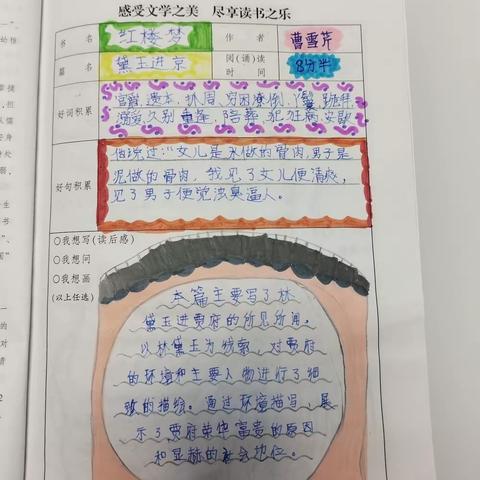 感受文学之美 尽享读书之乐
书名 红楼梦 作者 曹雪芹
篇名 黛玉进京 阅(诵)读时间 8分半
好词积累
久别重逢、陪葬、犯狂病、安歇
好句积累
他说过:"女儿是水做的骨肉,男子是
泥做的骨肉,我见了女儿便清爽,
见了男子便觉浊臭逼人。
○我想写(读后感)
○我想问
○我想画
(以上任选)
本篇主要写了林
黛玉进贾府的所见所闻。
以林黛玉为线索,对贾府
的环境和主要人物进行了细
致的描绘。通过环境描写,展
示了贾府荣华富贵的原因
和显赫的社会地位。